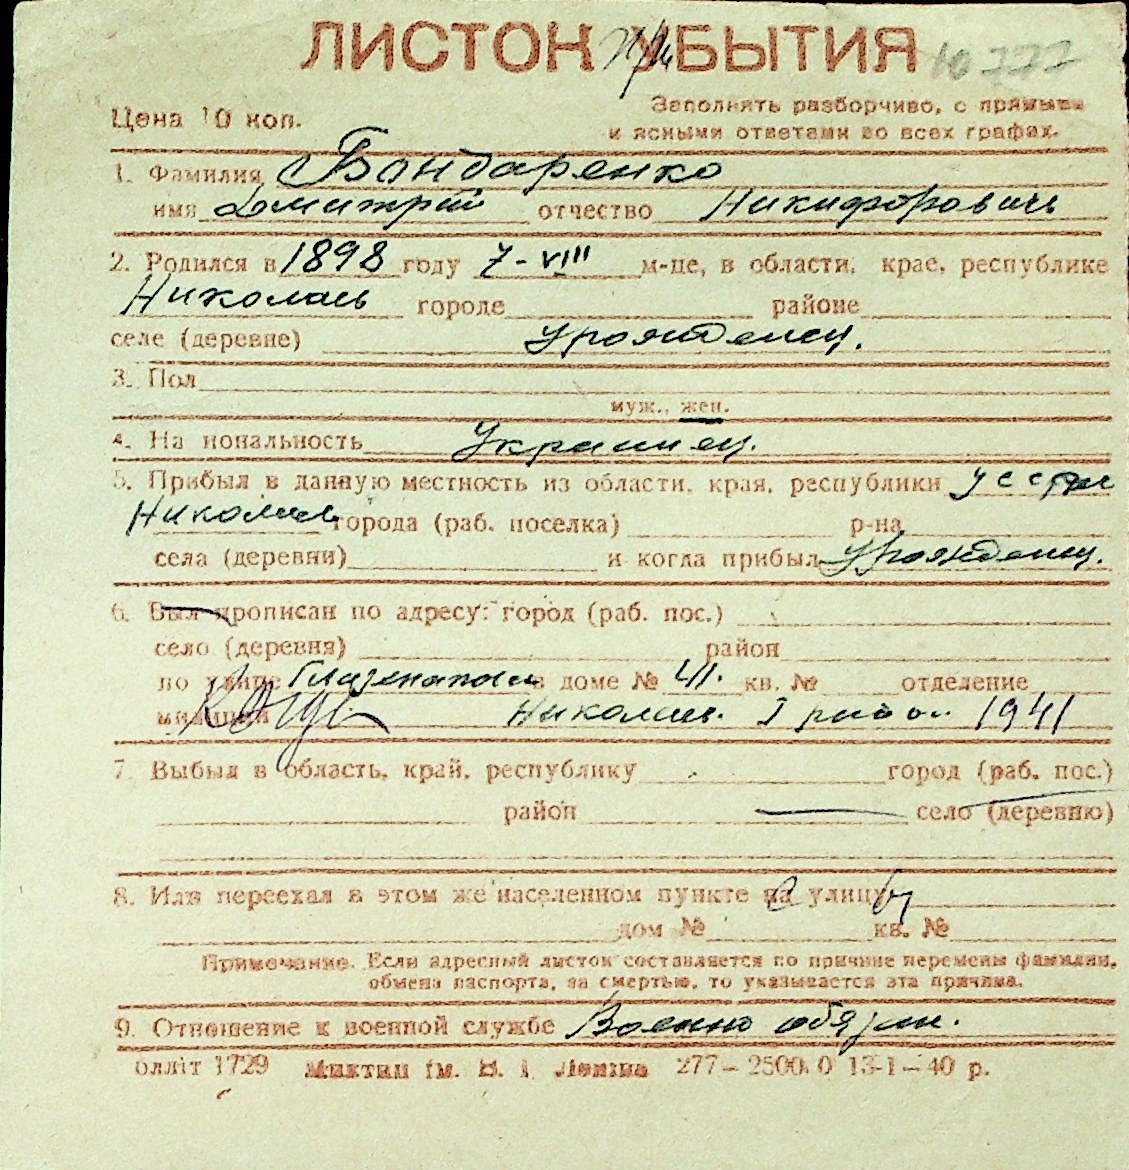 ЛИСТОК УБЫТИЯ 10777
Цена 10 коп.
Заполнять разборчиво, с прямыми
и ясными ответами во всех графах.
1. Фамилия Бондаренко
имя Дмитрий отчество Никифорович
2. Родился в 1898 году 7-VIII м-це, в области, крае, республике
Николаев городе районе
селе (деревне) урожденец.
3. Пол
муж., жен.
4. На иональность Украинец.
5. Прибыл в данную местность из области, края, республики УССР
Николаев города (раб. поселка) р-на
села (деревни) и когда прибыл Урожденец.
6. Был прописан по адресу: город (раб. пос.)
село (деревня) район
по улице в доме № 41. кв. № отделение
милиции Николаев. I район 1941
7. Выбыл в область, край, республику город (раб. пос.)
район село (деревню)
8. Или переехал в этом же населенном пункте на улицу
дом № кв. №
Примечание. Если адресный листок составляется по причине перемены фамилии,
обмена паспорта, за смертью, то указывается эта причина.
9. Отношение к военной службе Военно обязан.
олліт 1729 ім. В. І. Леніна 277–2500.0 13-1–40 р.